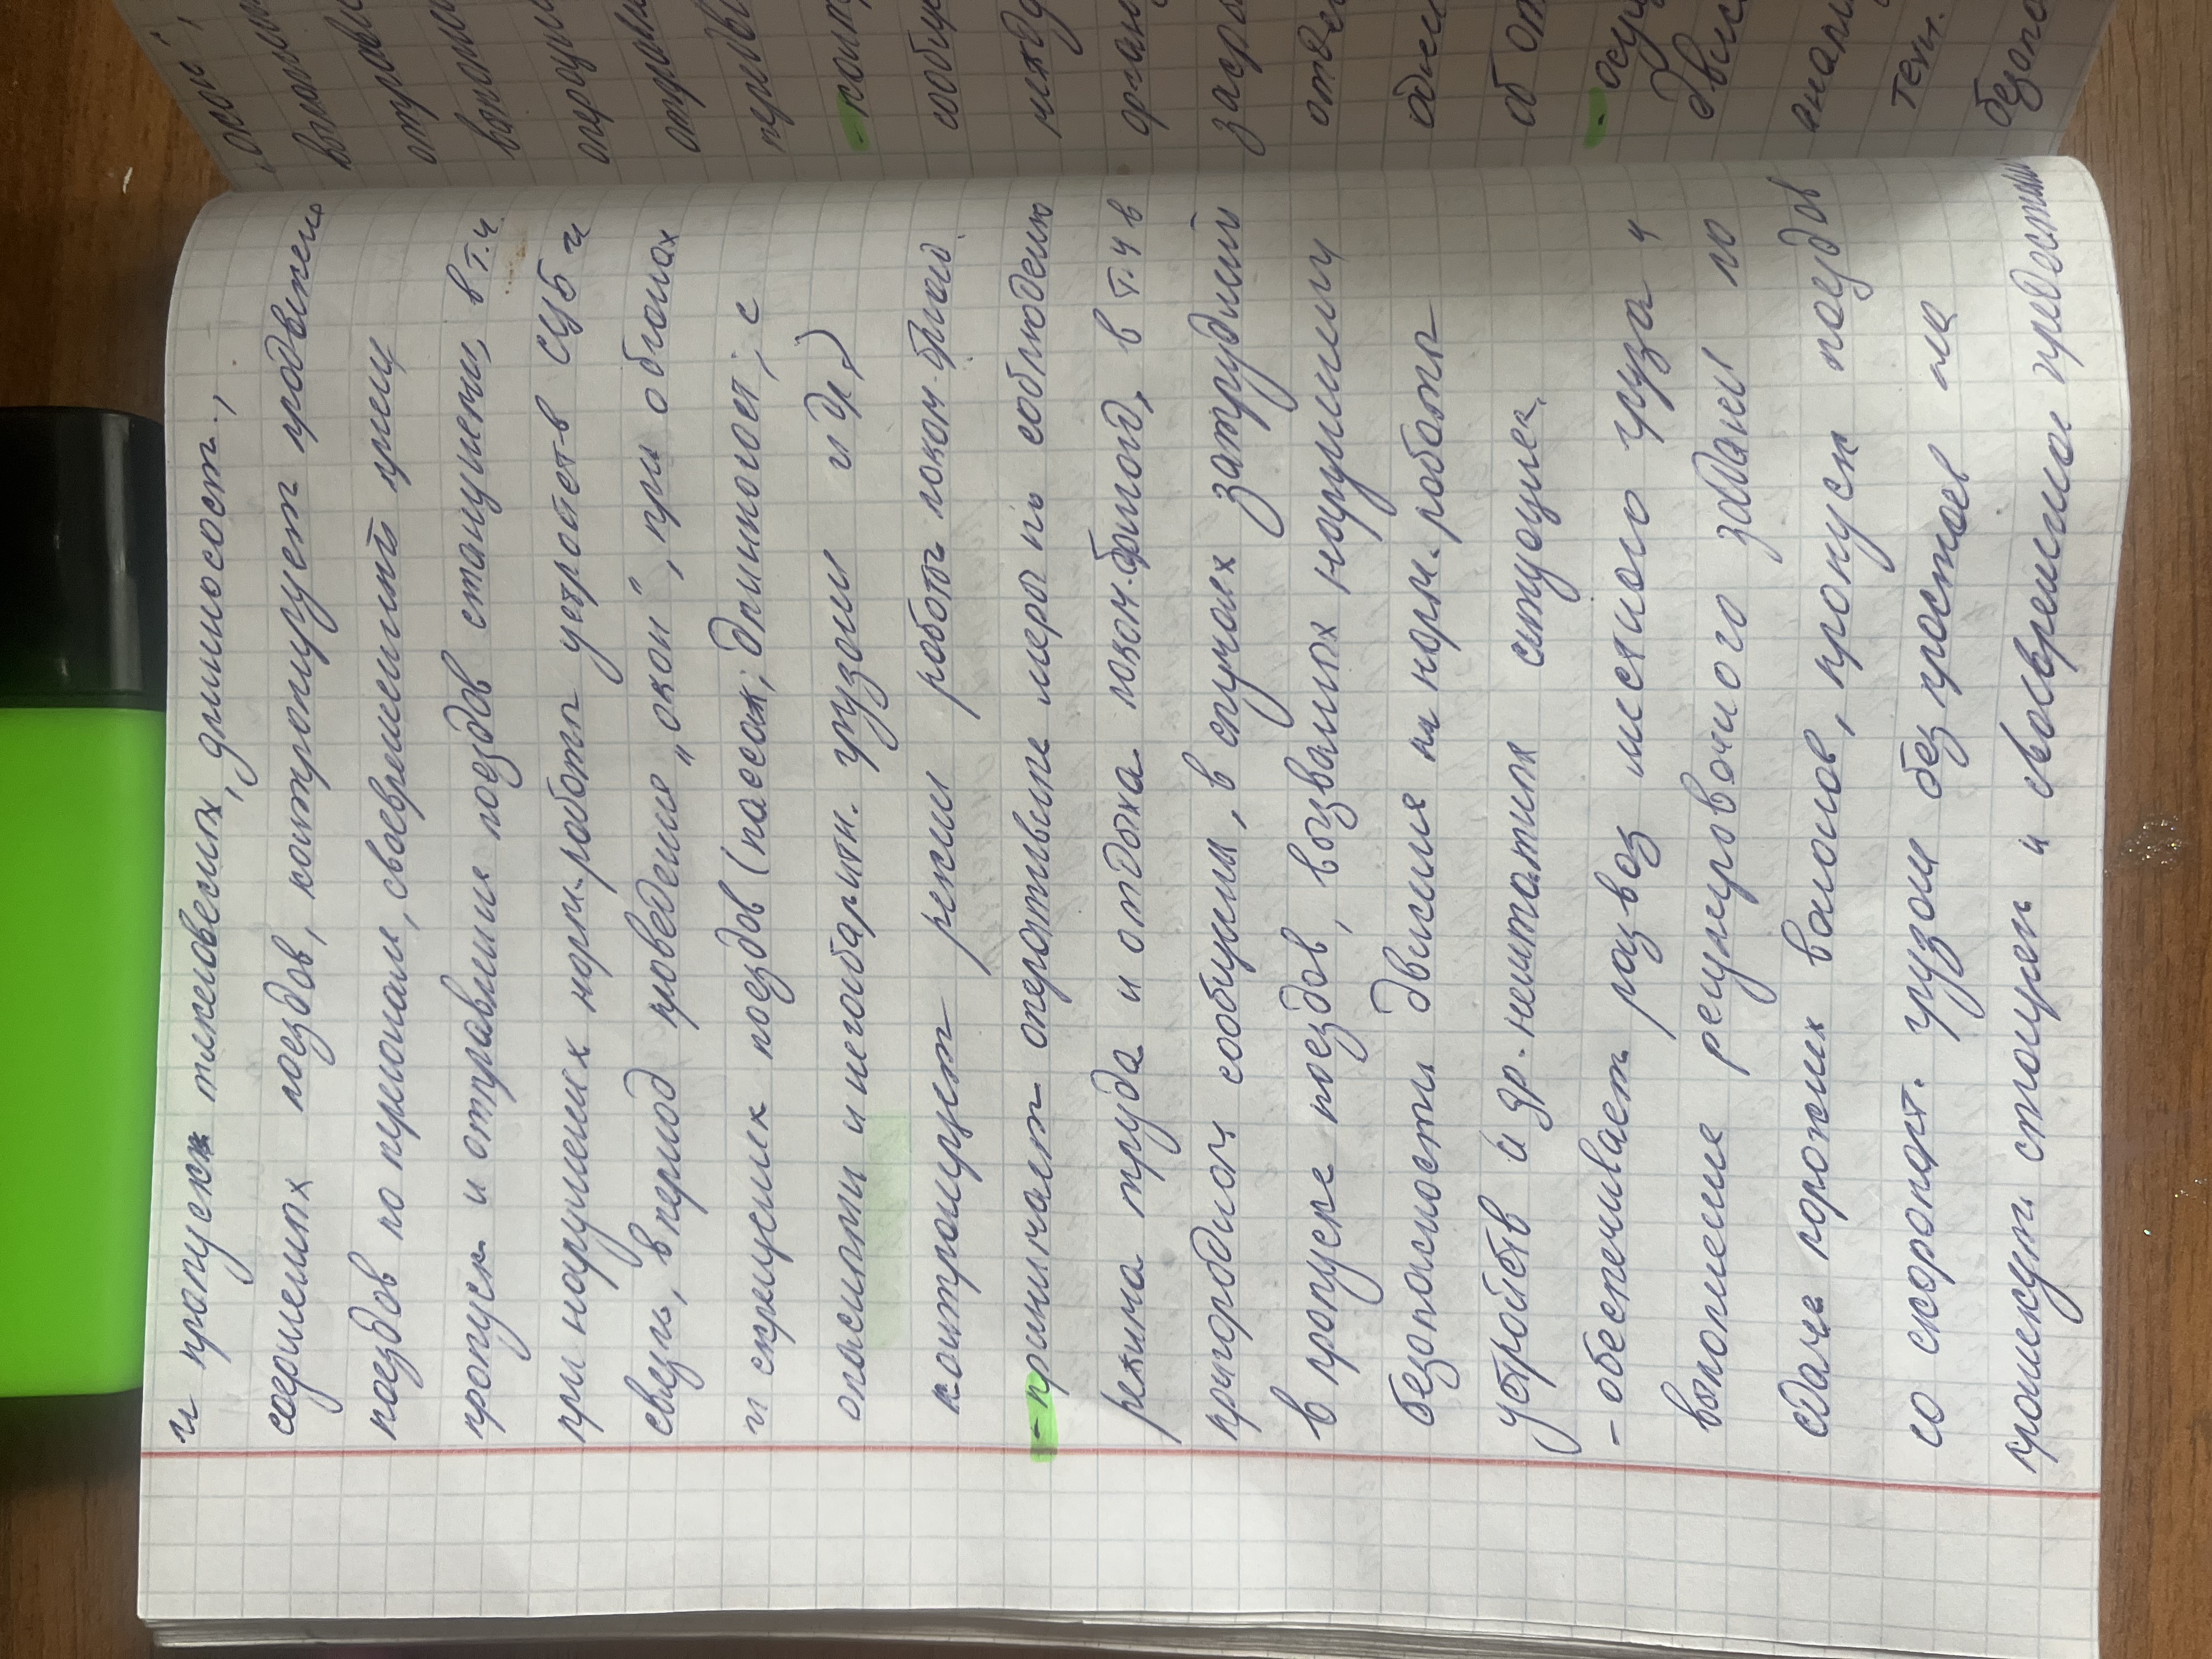 и пропуск тяжеловесных, длинносост.,
соединенных поездов, контролирует продвжени
поездов по перегонам, своевременный прием
пропуск и отправление поездов станциями, в т.ч.
при нарушениях норм. работы устройств СЦБ и
связи, в период проведения "окон", при обгонах
и скрещениях поездов (пассаж; длинносост; с
опасными и негабаритн. грузами и др.)
контролирует режим работы локом. бригад.
- принимает оперативные меры по соблюдению
режима труда и отдыха локом. бригад, в т.ч в
пригородном сообщении, в случаях затруднений
в пропуске поездов, вызванных нарушениями
безопасности движения на норм. работы
устройств и др. нештатных ситуациях.
- обеспечивает развоз местного груза и
выполнение регулировочного задания по
сдаче порожних вагонов, пропуск поездов
со скоропорт. грузом без простоев на
промежут. станциях и своевременное предоставлен
"окон",
выполнен
отправл
выполнен
операци
отправл
передв
- контр
сообще
между
орган
засро
отве
один
об от
- осу
движ
анали
техн.
безопа